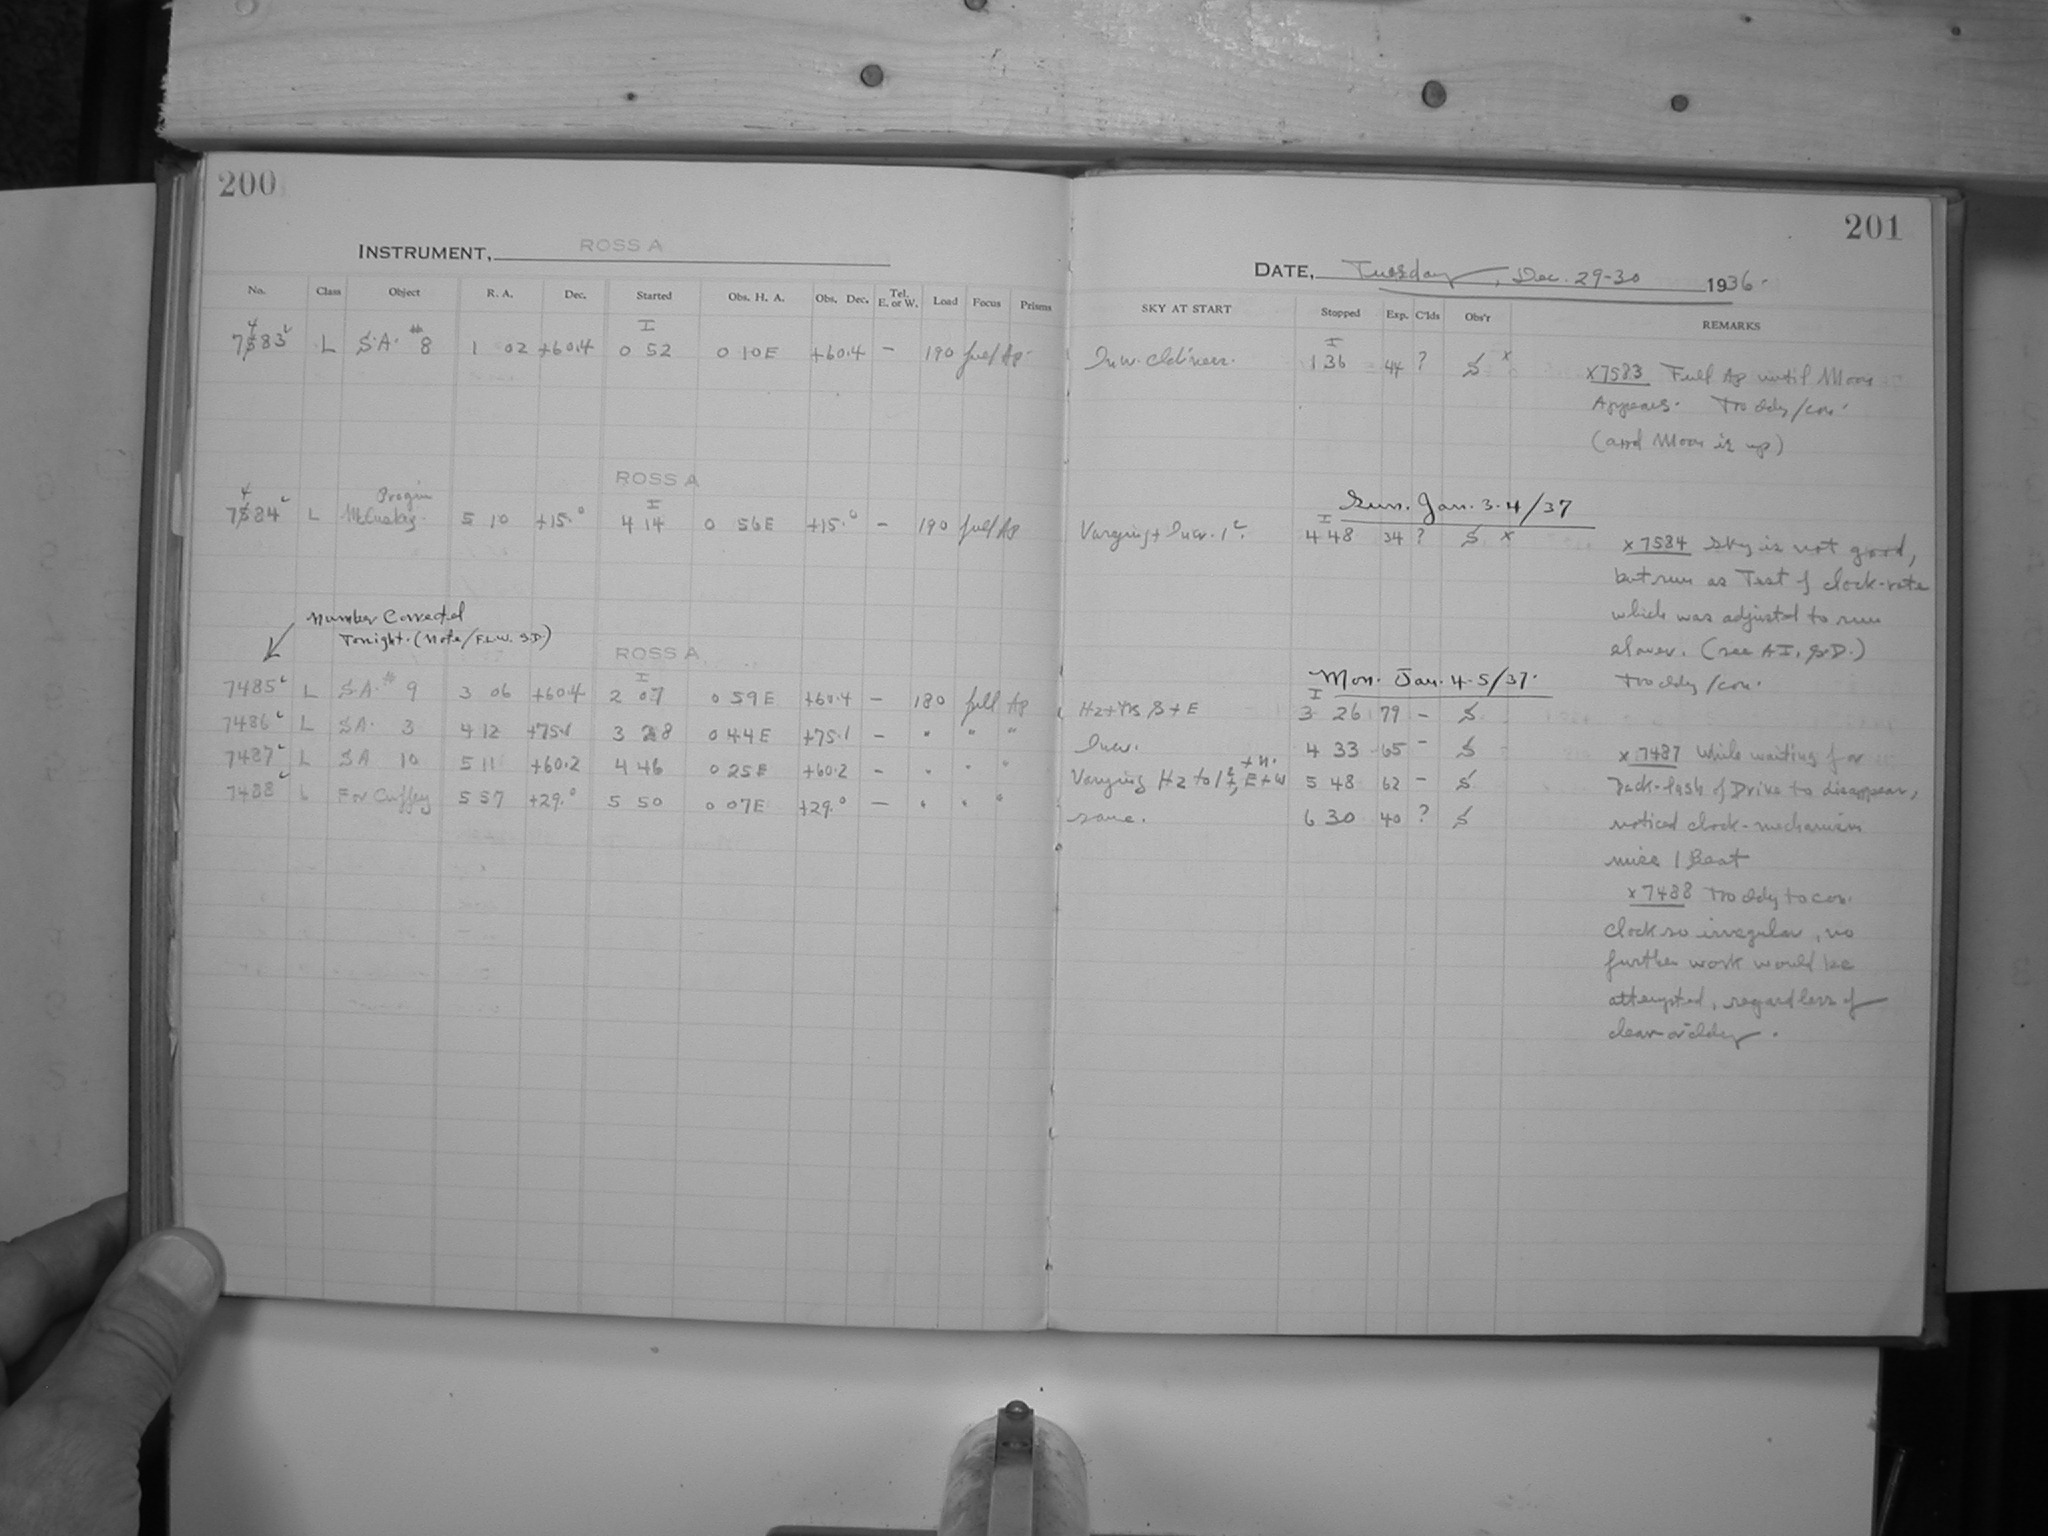 200
201
INSTRUMENT, ROSS A
DATE, Tuesday, Dec. 29-30 1936.
No. Class Object R. A. Dec. Started Obs. H. A. Obs. Dec. Tel. E. or W. Load Focus Prisms
SKY AT START Stopped Exp. C'lds Obs'r REMARKS
7583 4 L S.A. # 8 1 02 +60.4 I 0 52 0 10E +60.4 — 190 full Ap.
I 1 36 44 ? S x
x7583 Full Ap until Moon
Appears. Too cldy/con.
(and Moon is up)
ROSS A
Sun. Jan. 3-4/37
7584 4 L Program 5 10 +15.0 I 4 14 0 56E +15.0 — 190 full Ap
Varying + Incr. I 4 48 34 ? S x
x7584 Sky is not good,
but run as Test of clock-rate
which was adjusted to run
slower. (see AI, S.D.)
Too cldy/con.
Number Corrected
Tonight. (Note/F.L.W. S.D.)
ROSS A
Mon. Jan. 4-5/37.
7485 L S.A. # 9 3 06 +60.4 I 2 07 0 59E +60.4 — 180 full Ap
Hz+ S+E I 3 26 79 — S
7486 L SA. 3 4 12 +75.1 3 28 0 44E +75.1 — " " "
Incr. 4 33 65 — S
7487 L SA 10 5 11 +60.2 4 46 0 25E +60.2 — " " "
Varying Hz to E+W +N. 5 48 62 — S
7488 L For Cuffey 5 57 +29.0 5 50 0 07E +29.0 — " " "
same. 6 30 40 ? S
x7487 While waiting for
back-lash of Drive to disappear,
noticed clock-mechanism
miss 1 Beat
x7488 Too cldy to con.
clock so irregular, no
further work would be
attempted, regardless of
clear or cldy.